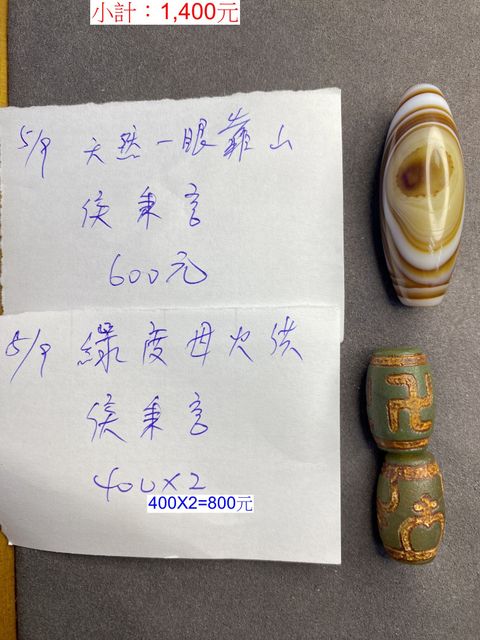 小計：1,400元
5/9 天然一眼靠山
侯秉言
600元
5/9 綠度母火供
侯秉言
400X2
400X2=800元
卍